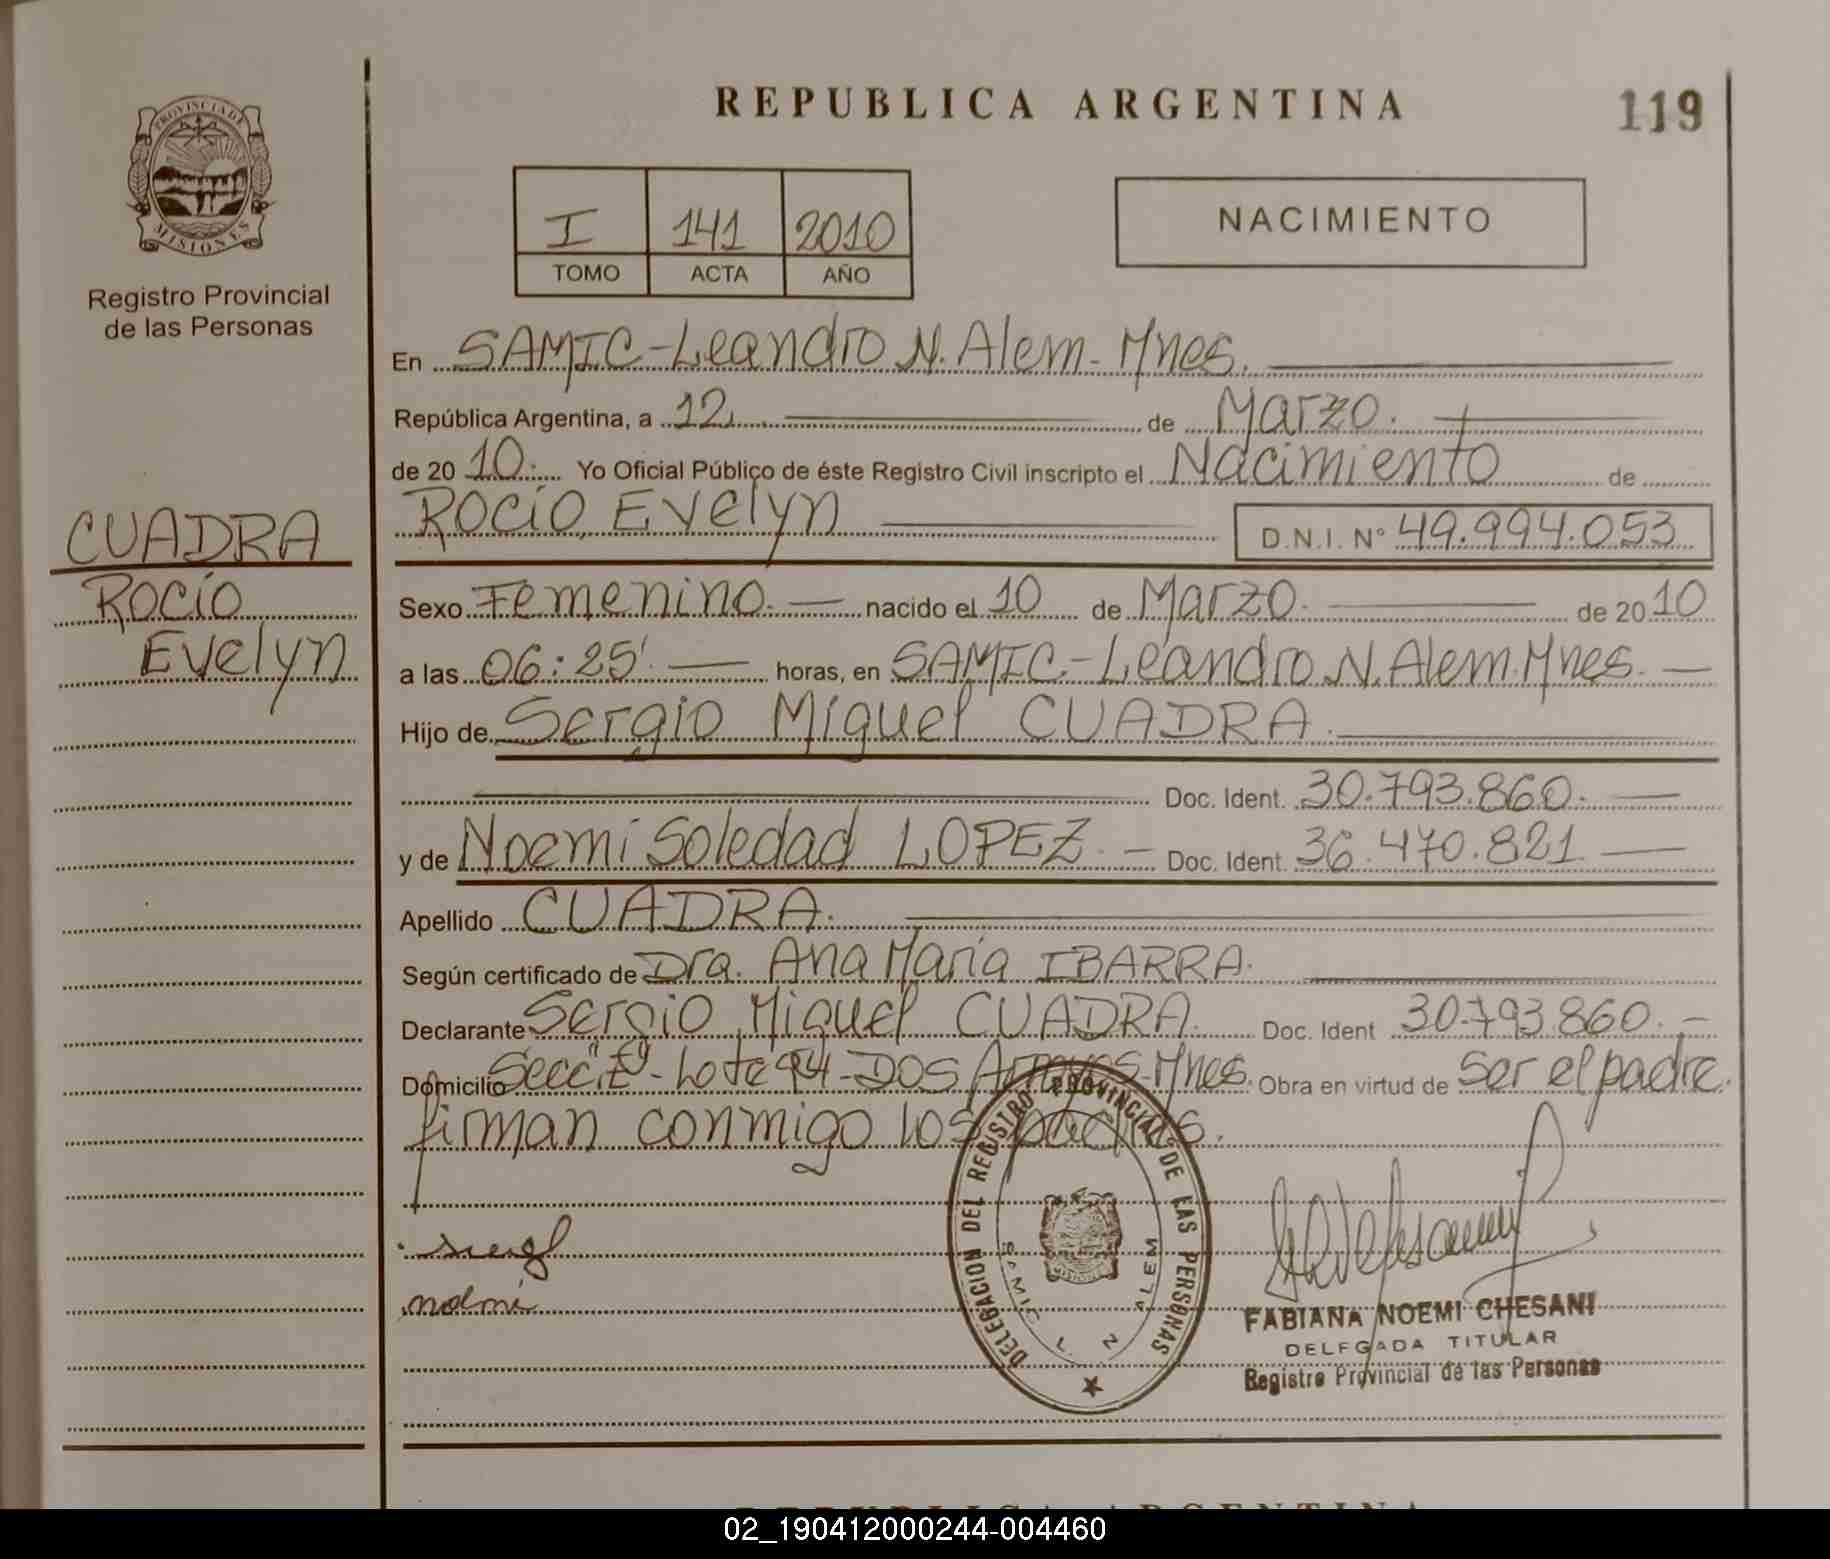 REPUBLICA ARGENTINA
119
PROVINCIA DE
MISIONES
Registro Provincial
de las Personas
I 141 2010
TOMO ACTA AÑO
NACIMIENTO
En SAMIC-Leandro N. Alem-Mnes.
República Argentina, a 12 de Marzo.
de 20 10. Yo Oficial Público de éste Registro Civil inscripto el Nacimiento de
Rocío Evelyn D.N.I. Nº 49.994.053
CUADRA
Rocío
Evelyn
Sexo Femenino. nacido el 10 de Marzo. de 20 10
a las 06:25' horas, en SAMIC-Leandro N. Alem.Mnes.
Hijo de Sergio Miguel CUADRA.
Doc. Ident. 30.793.860.
y de Noemí Soledad LOPEZ. Doc. Ident. 36.470.821
Apellido CUADRA.
Según certificado de Dra. Ana María IBARRA.
Declarante Sergio Miguel CUADRA. Doc. Ident 30.793.860.
Domicilio Secc. "E"- Lote 94-DOS Arroyos-Mnes. Obra en virtud de ser el padre.
firman conmigo los padres.
DELEGACION DEL REGISTRO PROVINCIAL DE LAS PERSONAS
SAMIC L. N. ALEM
MISIONES
FABIANA NOEMI CHESANI
DELEGADA TITULAR
Registro Provincial de las Personas
REPUBLICA ARGENTINA
02_190412000244-004460